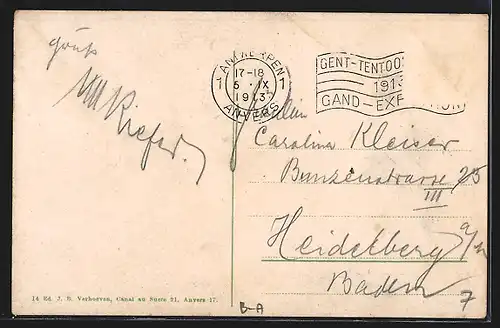 gruß
Kiefer.
1 ANTWERPEN 1
17-18
5 · IX
1913
ANVERS
GENT-TENTOO
1913
GAND-EXP TION
Fräulein
Carolina Kleiser
Bunzenstrasse 25
III
Heidelberg a/n
Baden
7
14 Ed. J. B. Verhoeven, Canal au Sucre 21, Anvers 17.
B-A